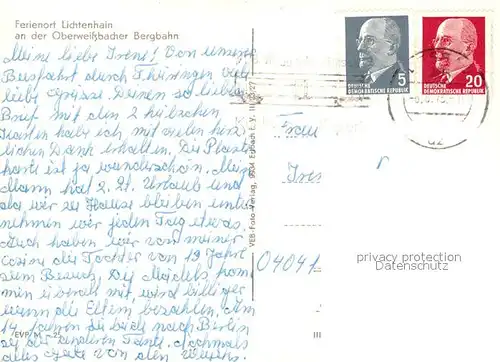 Ferienort Lichtenhain
an der Oberweißbacher Bergbahn
Meine liebe Irene! Von unserer
Busfahrt durch Thüringen viele
liebe Grüsse. Deinen so lieben
Brief mit den 2 hübschen
Karten habe ich mit vielen herz
lichen Dank erhalten. Die
karte ist ja wunderschön. Mein
Mann hat z. Zt. Urlaub und
da wir zu Hause bleiben unter
nehmen wir jeden Tag etwas.
Auch haben wir von meiner
die Tochter von 19 Jahre
zum Besuch. Die Mädels kom
men überall mit, wird billiger
wenn die Eltern bezahlen. Am
14. fahren sie beide nach Berlin
zu der anderen Tante. Nochmals
alles Gute von den
EVP
VEB-Foto-Verlag, 9934 Erlbach i. V.
5
DEUTSCHE
DEMOKRATISCHE REPUBLIK
20
DEUTSCHE
DEMOKRATISCHE REPUBLIK
Frau
04041
privacy protection
Datenschutz
III